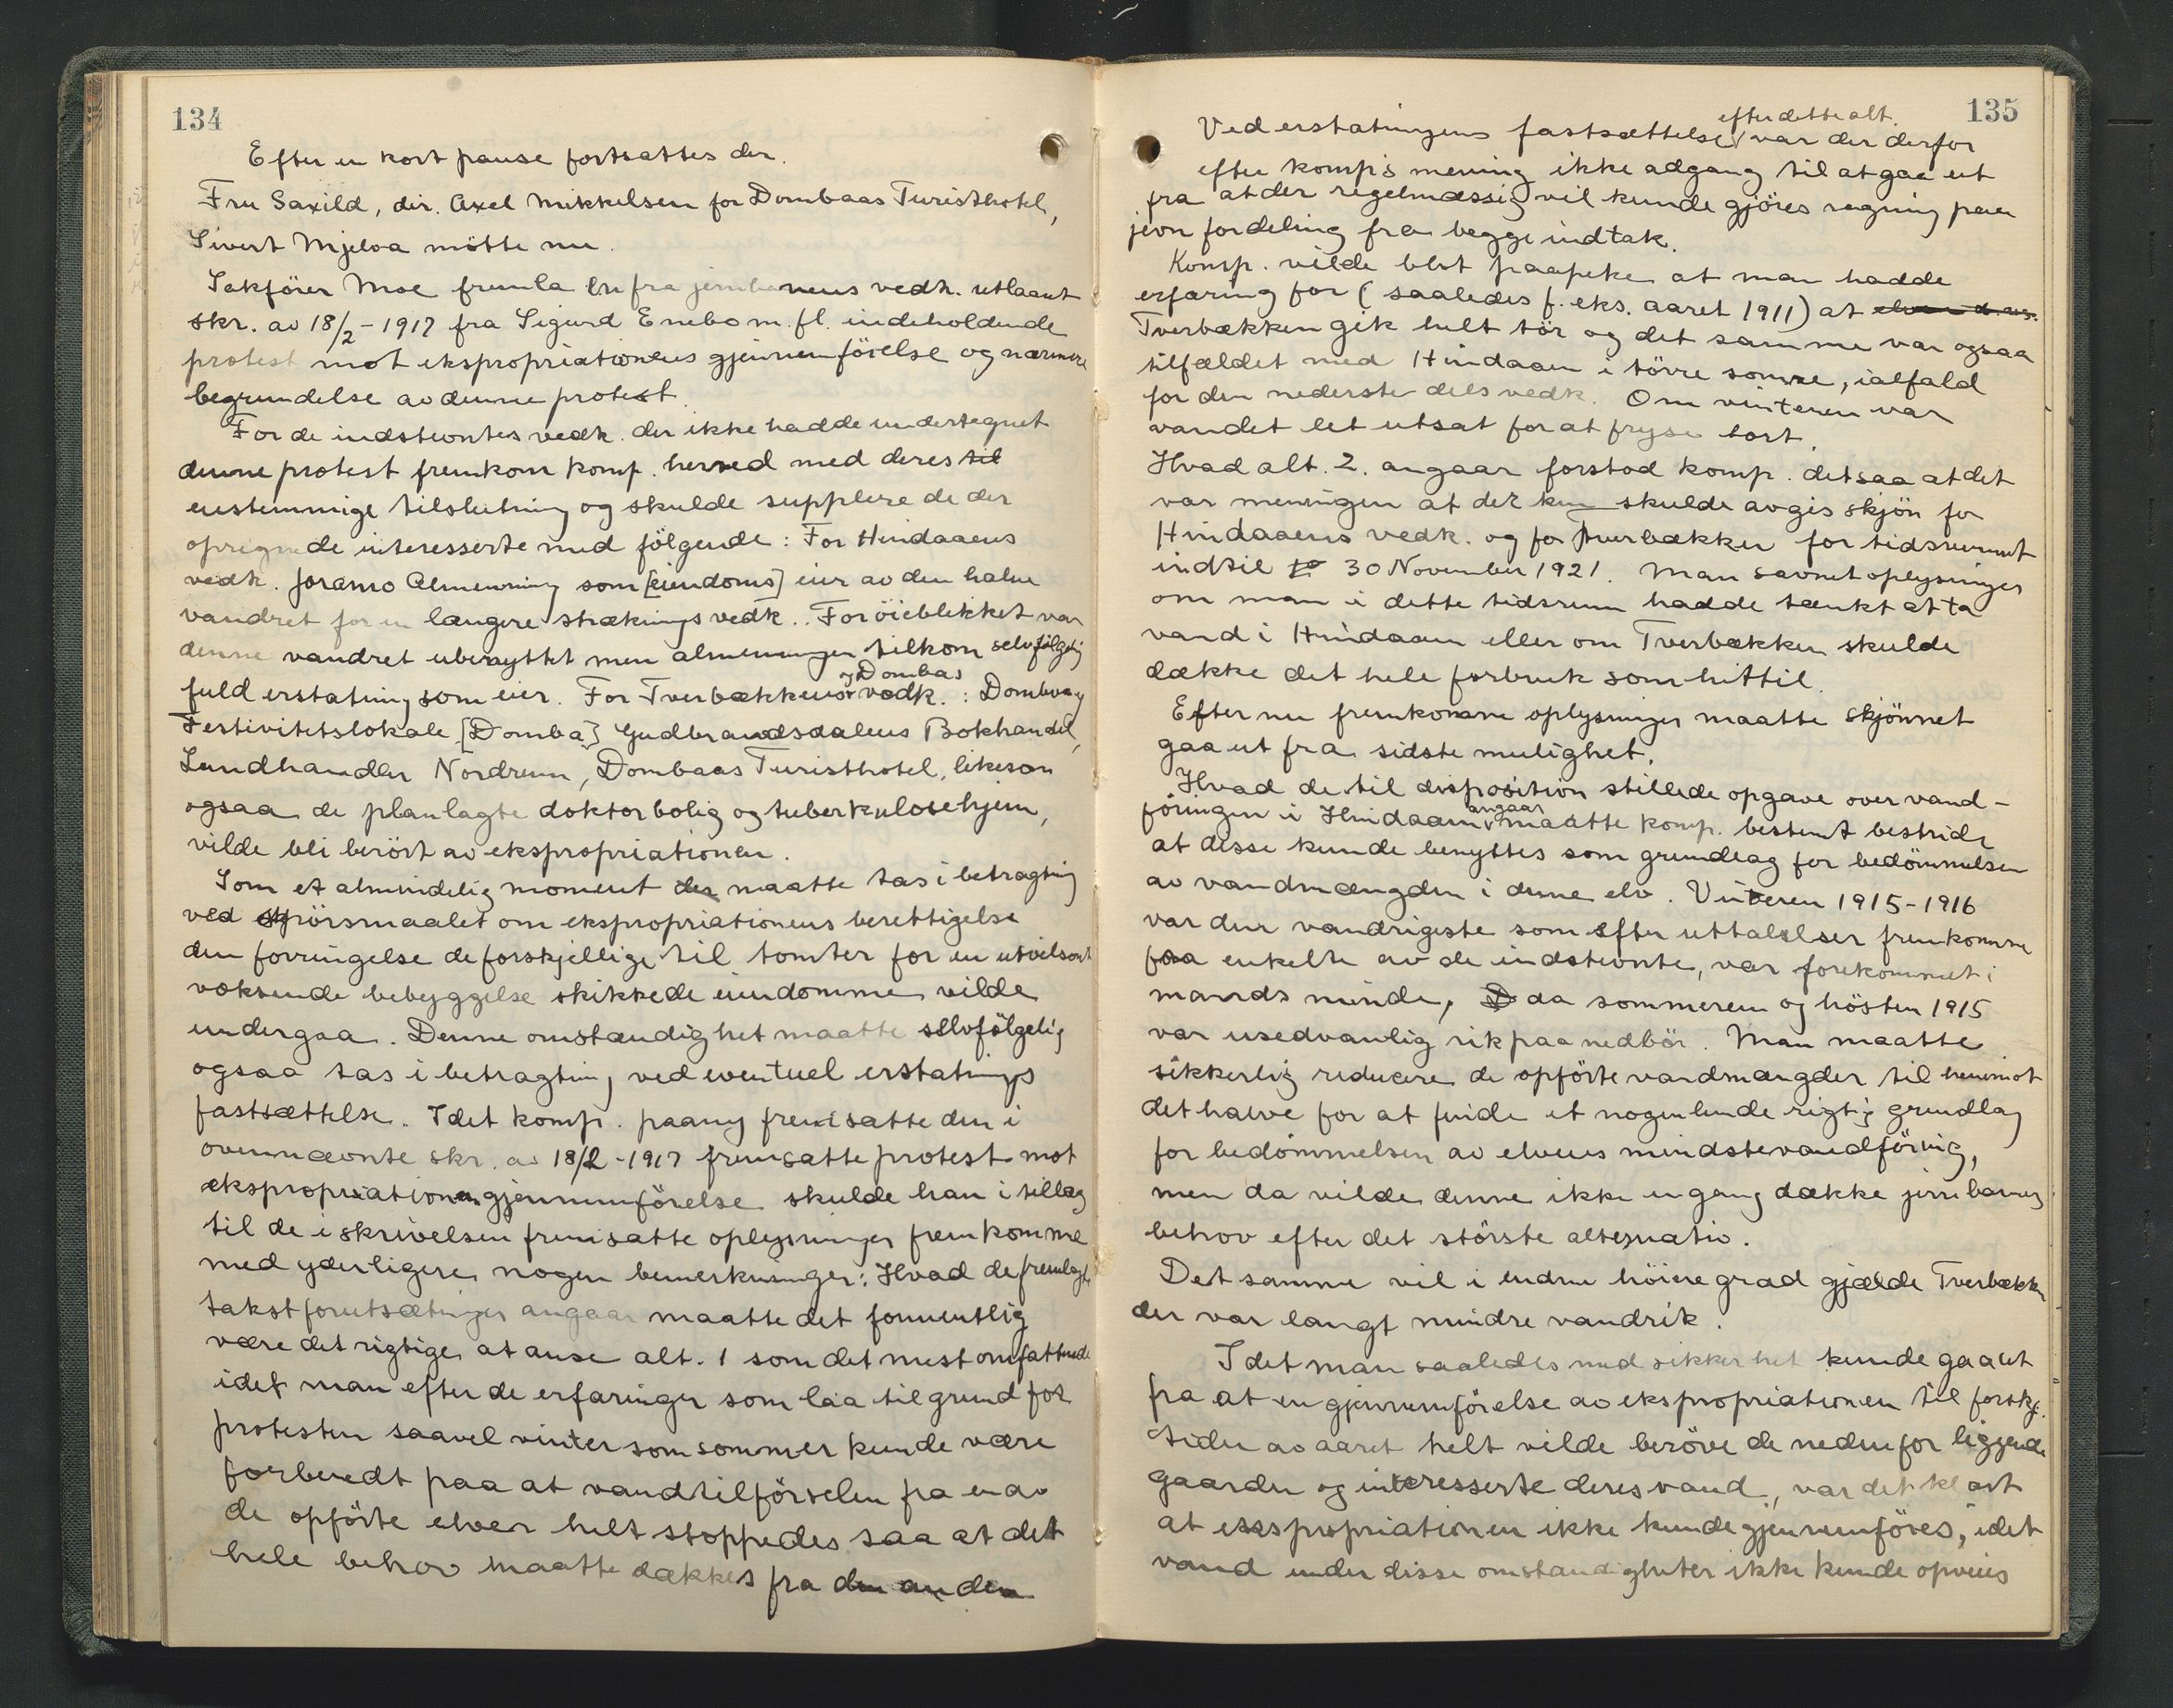 134
Efter en kort pause fortsattes der.
Fru Saxild, dir. Axel Mikkelsen for Dombaas Turisthotel,
Sivert Mjelva mötte nu.
Sakförer Moe fremla en fra jernbanens vedk. utlaant
skr. av 18/2-1917 fra Sigurd Enebo m. fl. indeholdende
protest mot ekspropriationens gjennemförelse og nærmere
begrundelse av denne protest.
For de indstevntes vedk. der ikke hadde undertegnet
denne protest fremkom komp. herved med deres til
enstemmige tilslutning og skulde supplere de der
opregnede interesserte med fölgende: For Hindaaens
vedk. Joramo Almenning som [eiendoms] eier av den halve
vandret for en længere stræknings vedk.. For öieblikket var
denne vandret ubenyttet men almenningen tilkom selvfölgelig
fuld erstatning som eier. For Tverbækkens og Dombas vedk.: Dombaas
Festivitetslokale [Domba] Gudbrandsdalens Bokhandel,
Landhandler Nordrum, Dombaas Turisthotel, likesom
ogsaa de planlagte doktorbolig og tuberkulosehjem,
vilde bli berört av ekspropriationen.
Som et almindelig moment der maatte tas i betragtning
ved spörsmaalet om ekspropriationens berettigelse
den forringelse de forskjellige til tomter for en utvilsomt
voksende bebyggelse skikkede eiendomme vilde
undergaa. Denne omstændighet maatte selvfölgelig
ogsaa tas i betragtning ved eventuel erstatnings
fastsættelse. Idet komp. paany fremsatte den i
ovennævnte skr. av 18/2-1917 fremsatte protest mot
ekspropriationens gjennemförelse skulde han i tillæg
til de i skrivelsen fremsatte oplysninger fremkomme
med yderligere nogen bemerkninger: Hvad de fremlagte
takstforutsætninger angaar maatte det formentlig
være det rigtige at anse alt. 1 som det mest omfattende
idet man efter de erfaringer som laa til grund for
protesten saavel vinter som sommer kunde være
forberedt paa at vandtilförselen fra en av
de opförte elver helt stoppedes saa at det
hele behov maatte dækkes fra den anden
135
efter dette alt.
Ved erstatningens fastsættelse var der derfor
efter komp's mening ikke adgang til at gaa ut
fra at der regelmæssig vil kunde gjöres regning paa
jevn fordeling fra begge indtak.
Komp. vilde blot paapeke at man hadde
erfaring for (saaledes f. eks. aaret 1911) at
Tverbækken gik helt tör og det samme var ogsaa
tilfældet med Hindaaen i törre somre, ialfald
for den nederste dels vedk. Om vinteren var
vandet let utsat for at fryse bort.
Hvad alt. 2. angaar forstod komp. det saa at det
var meningen at det kun skulde avgis skjön for
Hindaaens vedk. og for Tverbækken for tidsrummet
indtil 30 November 1921. Man savnet oplysninger
om man i dette tidsrum hadde tænkt at ta
vand i Hindaaen eller om Tverbækken skulde
dække det hele forbruk som hittil.
Efter nu fremkomne oplysninger maatte skjönnet
gaa ut fra sidste mulighet.
Hvad de til disposition stillede opgave over vand-
föringen i Hindaaen angaar maatte komp. bestemt bestride
at disse kunde benyttes som grundlag for bedömmelsen
av vandmængden i denne elv. Vinteren 1915-1916
var den vandrigeste som efter uttalelser fremkomne
fra enkelte av de indstevnte, var forekommet i
mands minde, da sommeren og hösten 1915
var usedvanlig rik paa nedbör. Man maatte
sikkerlig reducere de opförte vandmængder til henimot
det halve for at finde et nogenlunde rigtig grundlag
for bedömmelsen av elvens mindstevandföring,
men da vilde denne ikke engang dække jernbanens
behov efter det störste alternativ.
Det samme vil i endnu höiere grad gjælde Tverbækken
der var langt mindre vandrik.
Idet man saaledes med sikkerhet kunde gaa ut
fra at en gjennemförelse av ekspropriationen til forskj.
tider av aaret helt vilde beröve de nedenfor liggende
gaarder og interesserte deres vand, var det klart
at ekspropriationen ikke kunde gjennemföres, idet
vand under disse omstændigheter ikke kunde opveies